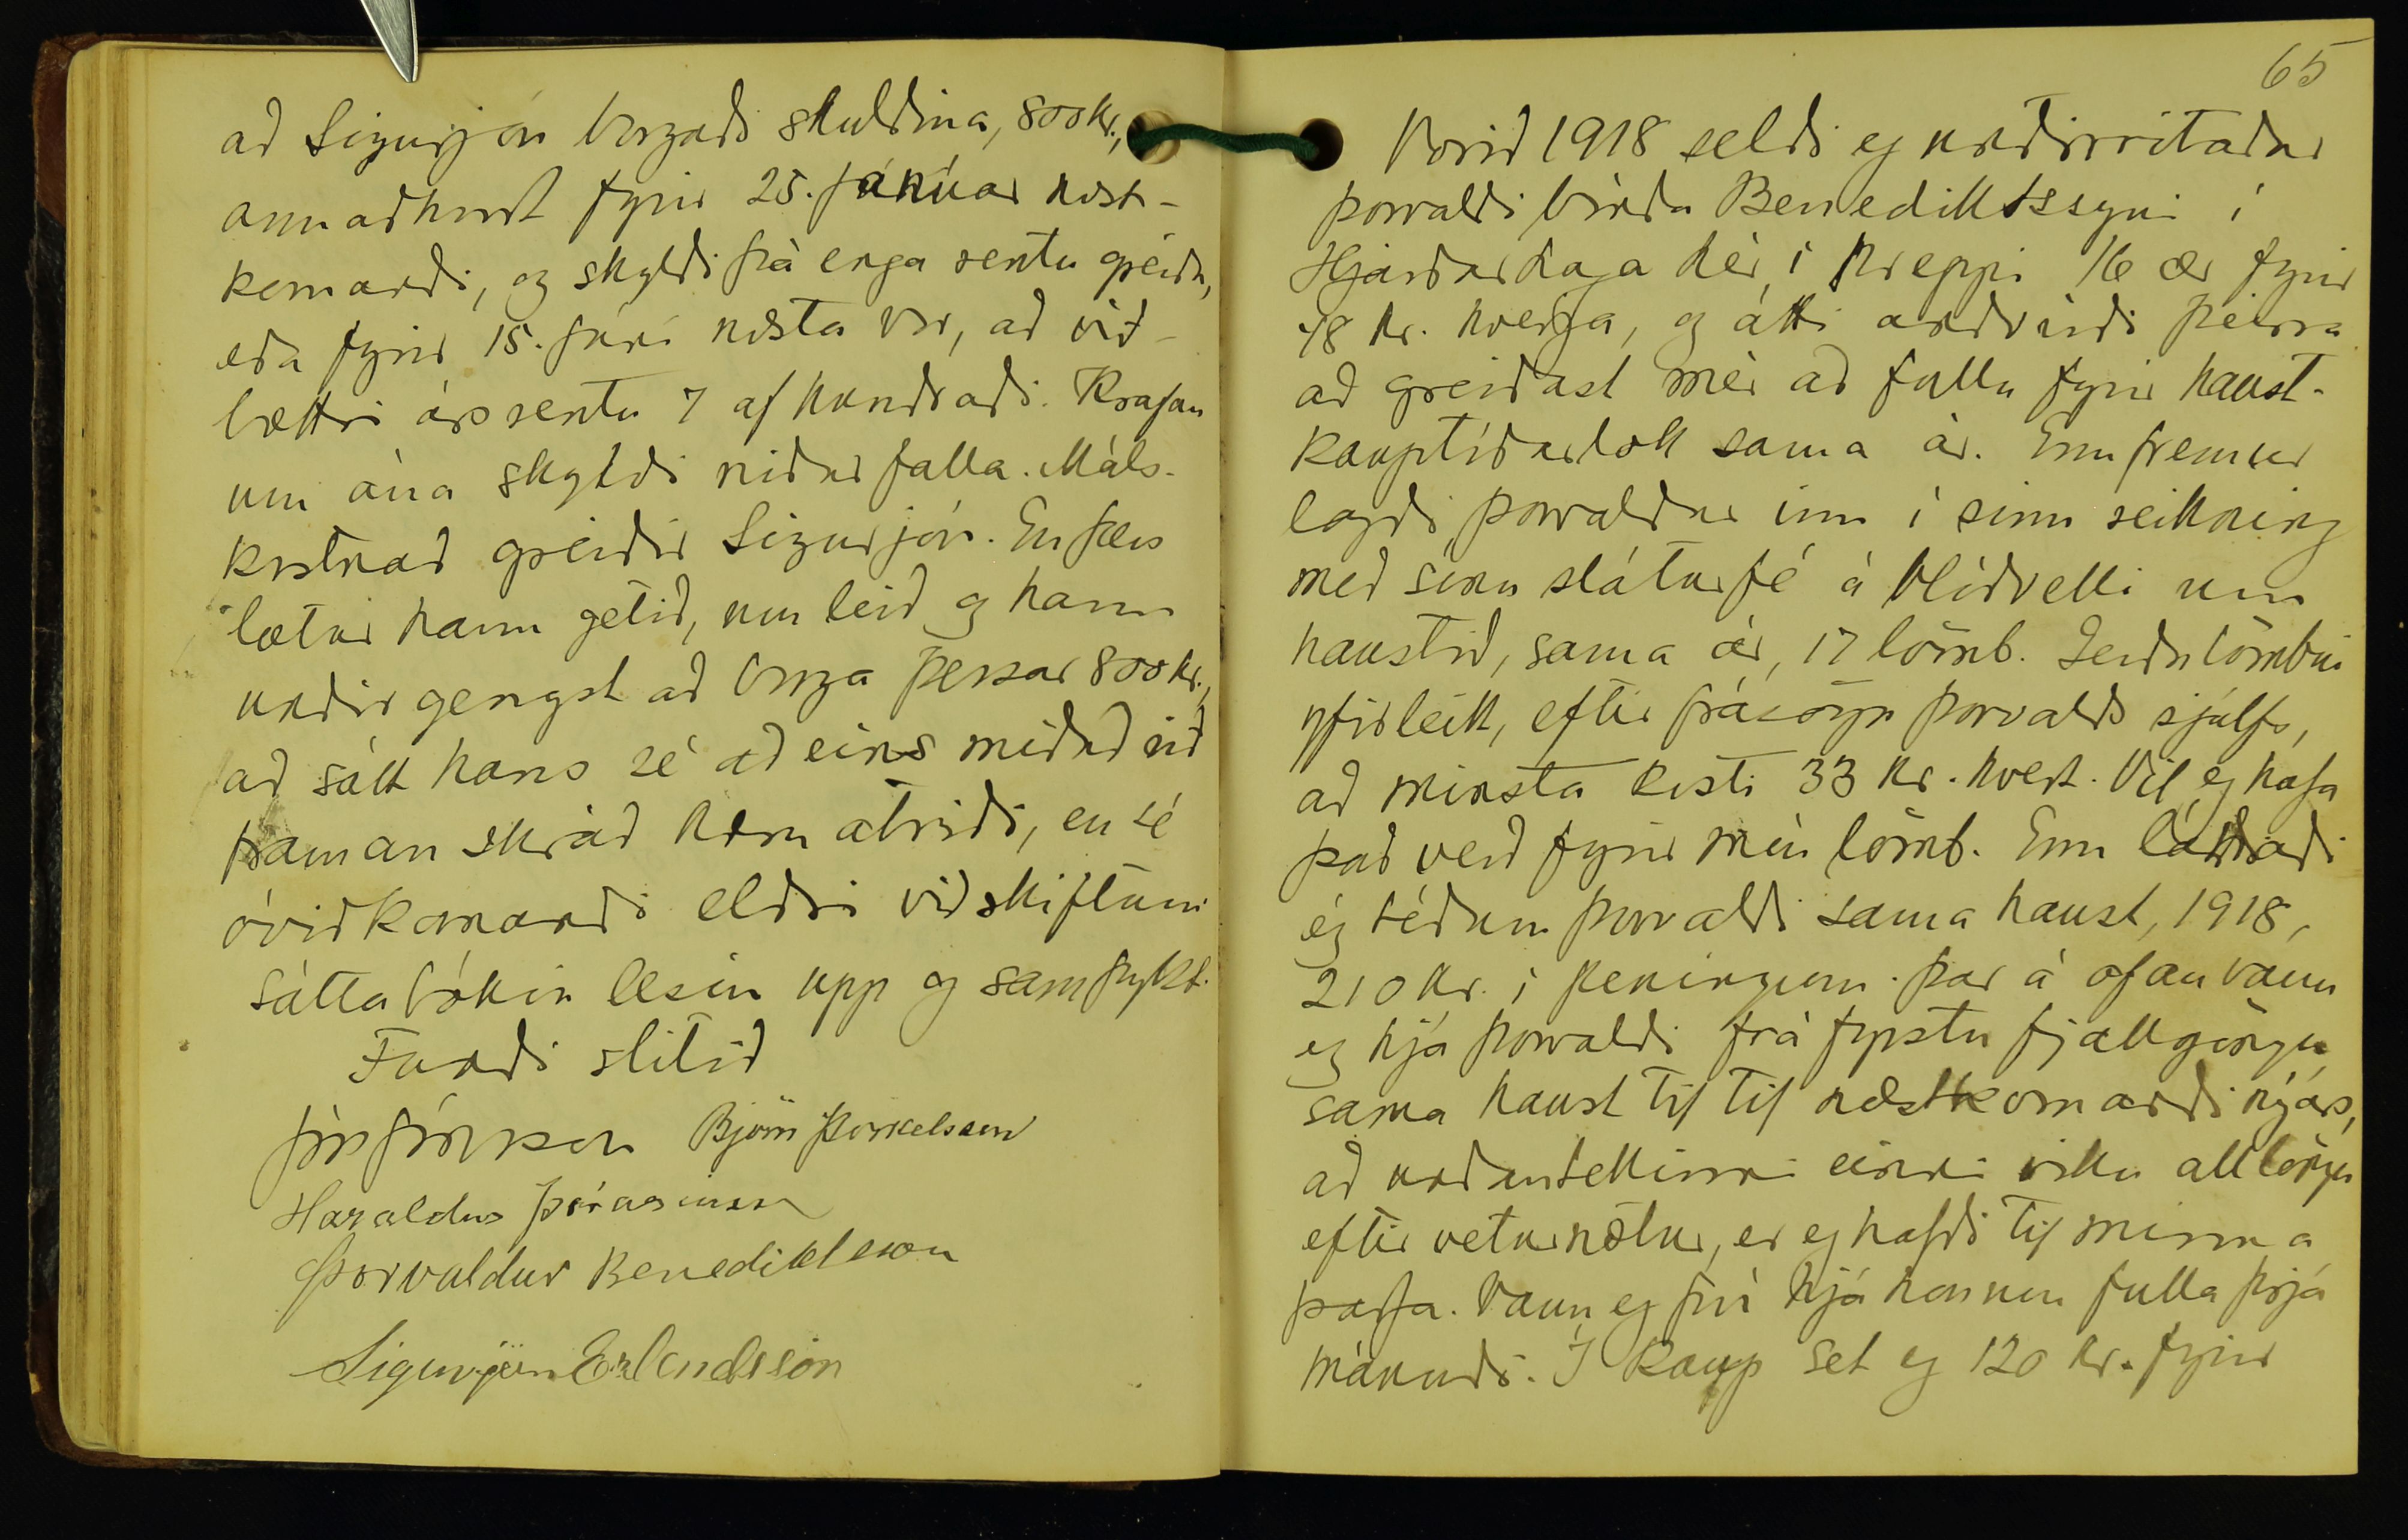 að Sigurjón borgaði skuldina, 800 kr.,
annaðhvort fyrir 25. janúar næst-
komandi, og skyldi þá enga rentu greiða,
eða fyrir 15. júní næsta vor, að við-
bættri ársrentu 7 af hundraði. Krafan
um ána skyldi niður falla. Máls-
kostnað greiðir Sigurjón. En þess
lætur hann getið, um leið og hann
undirgengst að borga þessar 800 kr.,
að sátt hans sé að eins miðuð við
framan skráð kæru atriði, en sé
óviðkomandi eldri viðskiftum
Sáttabókin lesin upp og samþykt.
Fundi slitið
Jón Jónsson Björn Þorkelsson
Haraldur Þórarinsson
Þorvaldur Benediktsson
Sigurjón Erlendsson
65
Vorið 1918 seldi eg undirritaður
Þorvaldi bónda Benediktssyni í
Hjarðarhaga hér í hreppi 16 ær fyrir
48 kr. hverja, og átti andvirði þeirra
að greiðast mér að fullu fyrir haust-
kauptíðarlok sama ár. Enn fremur
lagði Þorvaldur inn í sinn reikning
með sínu sláturfé á Hlíðvelli um
haustið, sama ár, 17 lömb. Lögðu lömbin
yfirleitt, eftir frásögn Þorvalds sjálfs,
að minsta kosti 33 kr. hvert. Vil eg hafa
það verð fyrir mín lömb. Enn lánaði
ég téðum Þorvaldi sama haust, 1918,
210 kr. í peningum. Þar á ofan vann
eg hjá Þorvaldi frá fyrstu fjallgöngu
sama haust til til næstkomandi nýárs,
að undantekinni einni viku alllöngu
eftir veturnætur, er eg hafði til minna
þarfa. Vann eg því hjá honum fulla þrjá
mánuði. Í kaup set eg 120 kr. fyrir